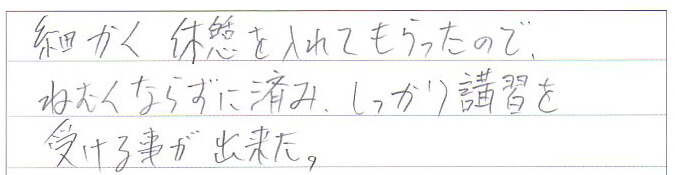 細かく休憩を入れてもらったので、
ねむくならずに済み、しっかり講習を
受ける事が出来た。